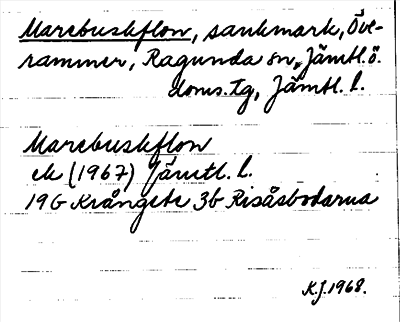 Marcbuskflon, sankmark, Öve-
rammer, Ragunda sn, Jämtl. ö.
doms.tg, Jämtl. l.
Marcbuskflon
ek (1967) Jämtl. l.
19G Krångede 3b Risåsbodarna
K.J. 1968.